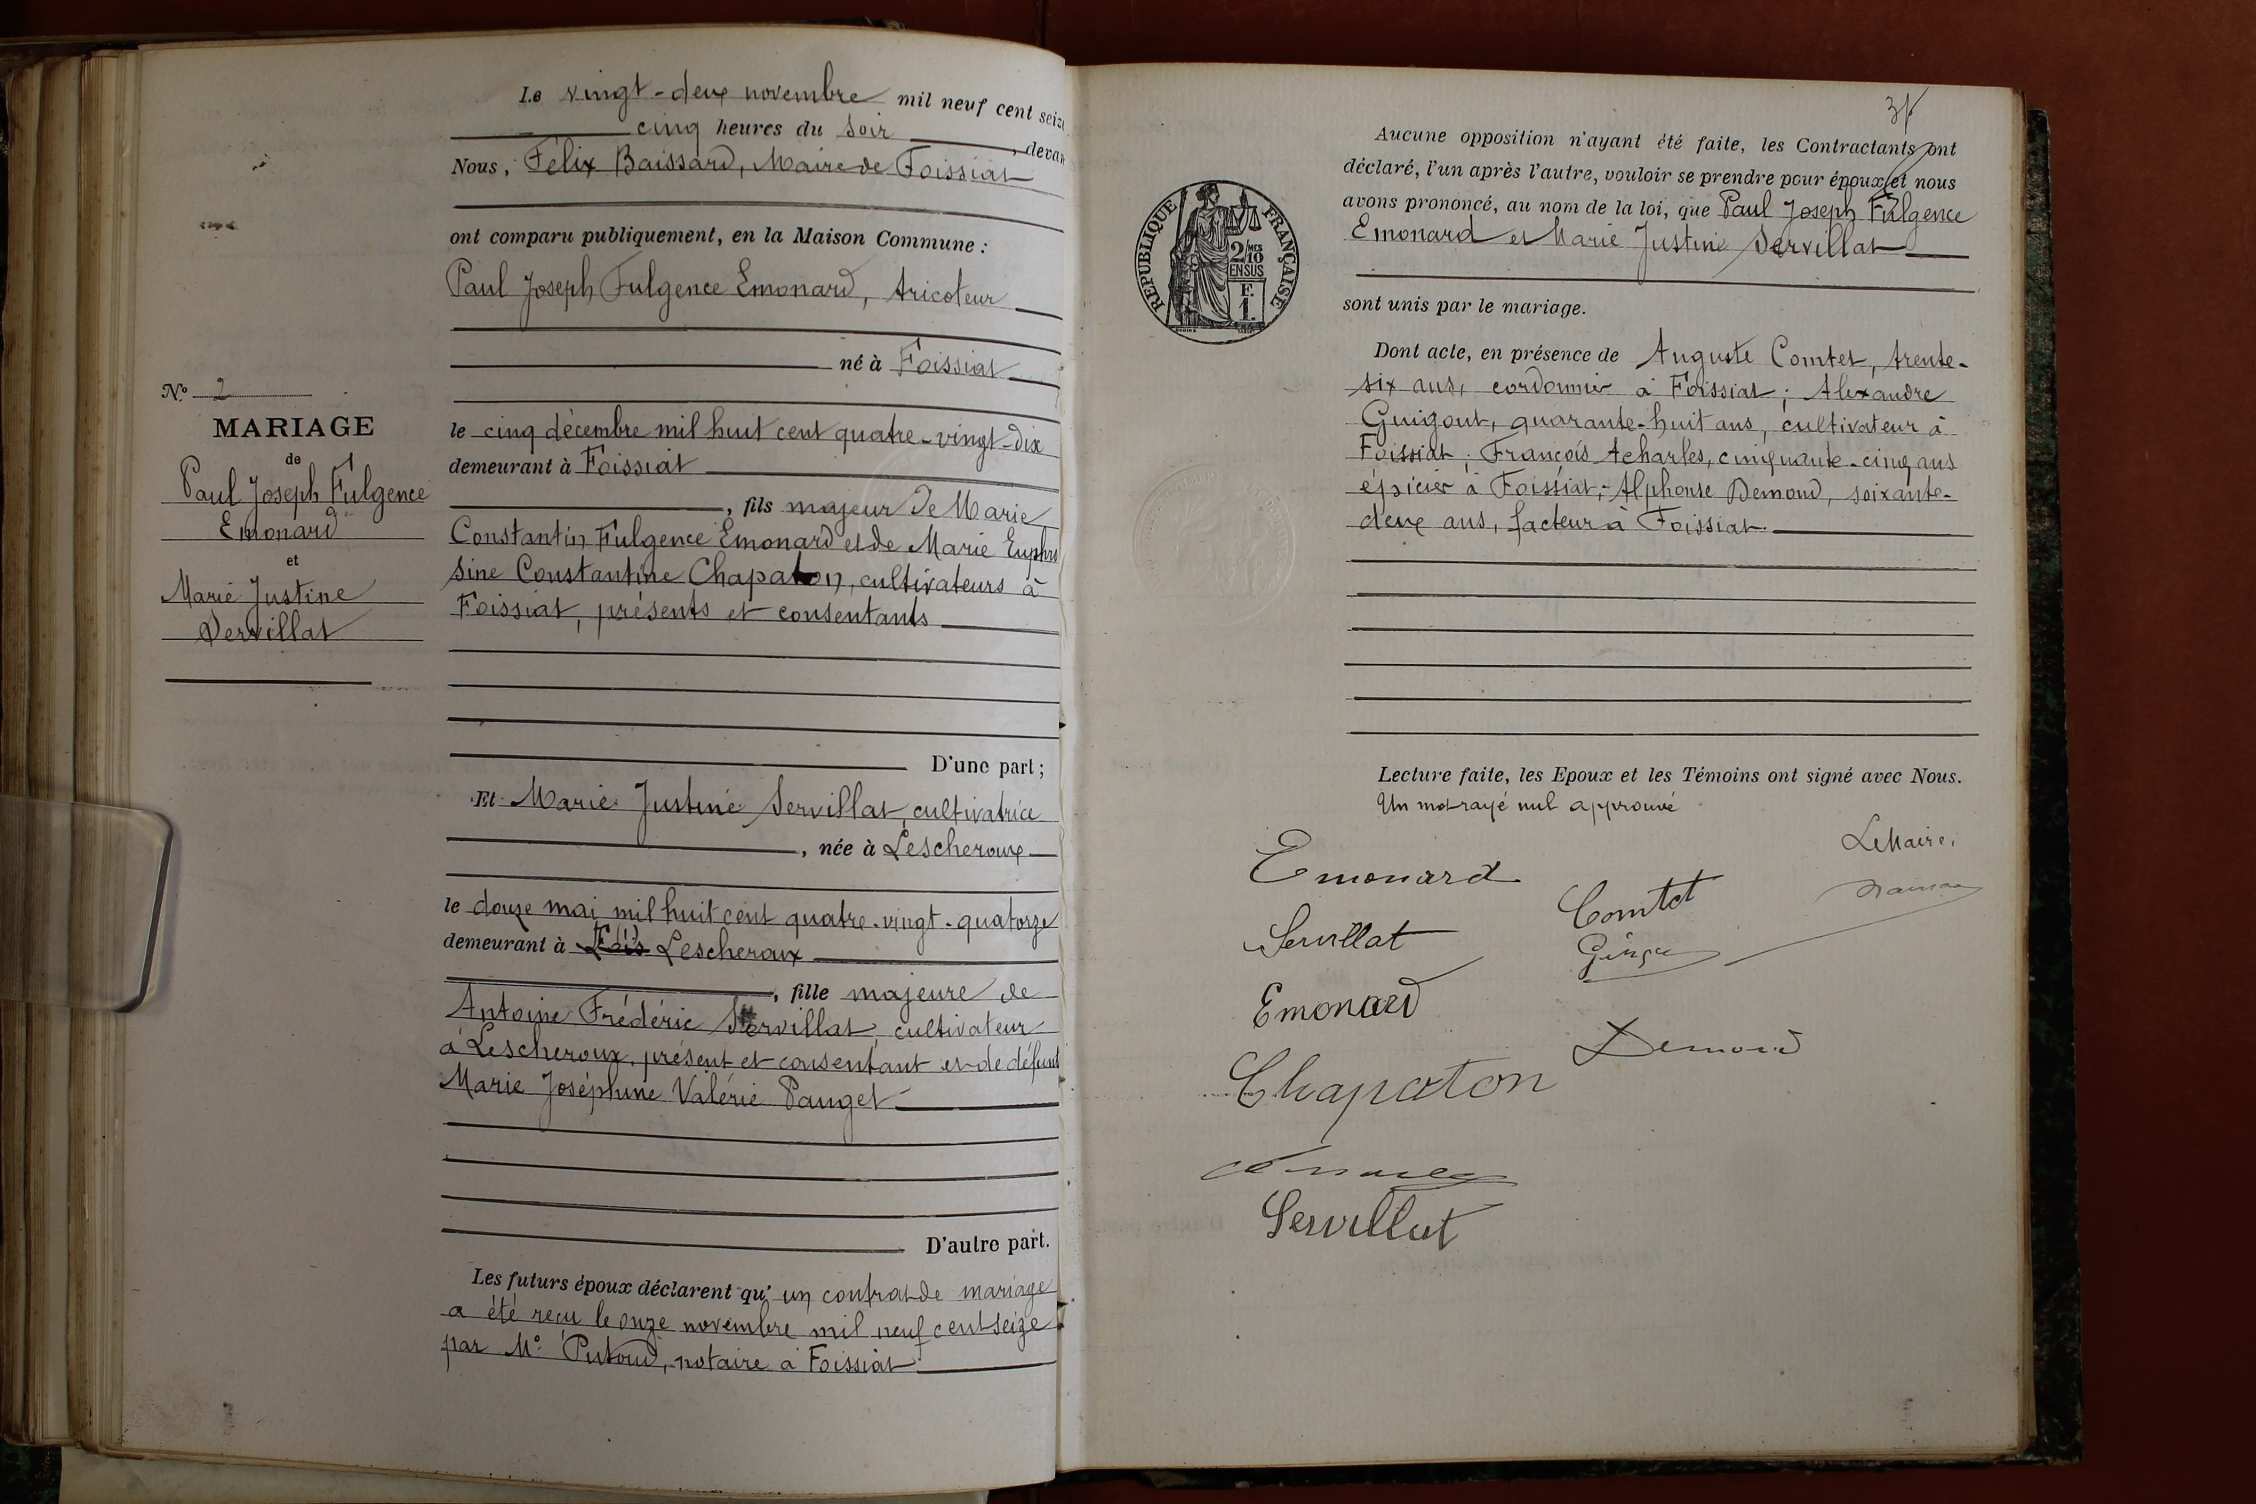 Le vingt-deux novembre mil neuf cent seize
cinq heures du soir, devan
Nous, Félix Baissard, Maire de Foissiat
ont comparu publiquement, en la Maison Commune :
Paul Joseph Fulgence Emonard, tricoteur
né à Foissiat
le cinq décembre mil huit cent quatre-vingt-dix
demeurant à Foissiat
, fils majeur de Marie
Constantin Fulgence Emonard et de Marie Euphro
sine Constantine Chapaton, cultivateurs à
Foissiat, présents et consentants
D'une part ;
Et Marie Justine Servillat, cultivatrice
, née à Lescheroux
le douze mai mil huit cent quatre-vingt-quatorze
demeurant à Fois Lescheroux
, fille majeure de
Antoine Frédéric Servillat, cultivateur
à Lescheroux, présent et consentant et de défunt
Marie Joséphine Valérie Pauget
D'autre part.
Les futurs époux déclarent qu'un contrat de mariage
a été reçu le onze novembre mil neuf cent seize
par Me Putoud, notaire à Foissiat
No 2
MARIAGE
de
Paul Joseph Fulgence
Emonard
et
Marie Justine
Servillat
RÉPUBLIQUE FRANÇAISE
2/10 MES
EN SUS
F.
1.
Aucune opposition n'ayant été faite, les Contractants ont
déclaré, l'un après l'autre, vouloir se prendre pour époux et nous
avons prononcé, au nom de la loi, que Paul Joseph Fulgence
Emonard et Marie Justine Servillat
sont unis par le mariage.
Dont acte, en présence de Auguste Comtet, trente-
six ans, cordonnier à Foissiat ; Alexandre
Guigout, quarante-huit ans, cultivateur à
Foissiat ; François Acharles, cinquante-cinq ans
épicier à Foissiat ; Alphonse Demoud, soixante-
deux ans, facteur à Foissiat
Lecture faite, les Epoux et les Témoins ont signé avec Nous.
Un mot rayé nul approuvé
Le Maire,
Emonard
Comtet
Servillat
Emonard
Demoud
Chapaton
Servillat